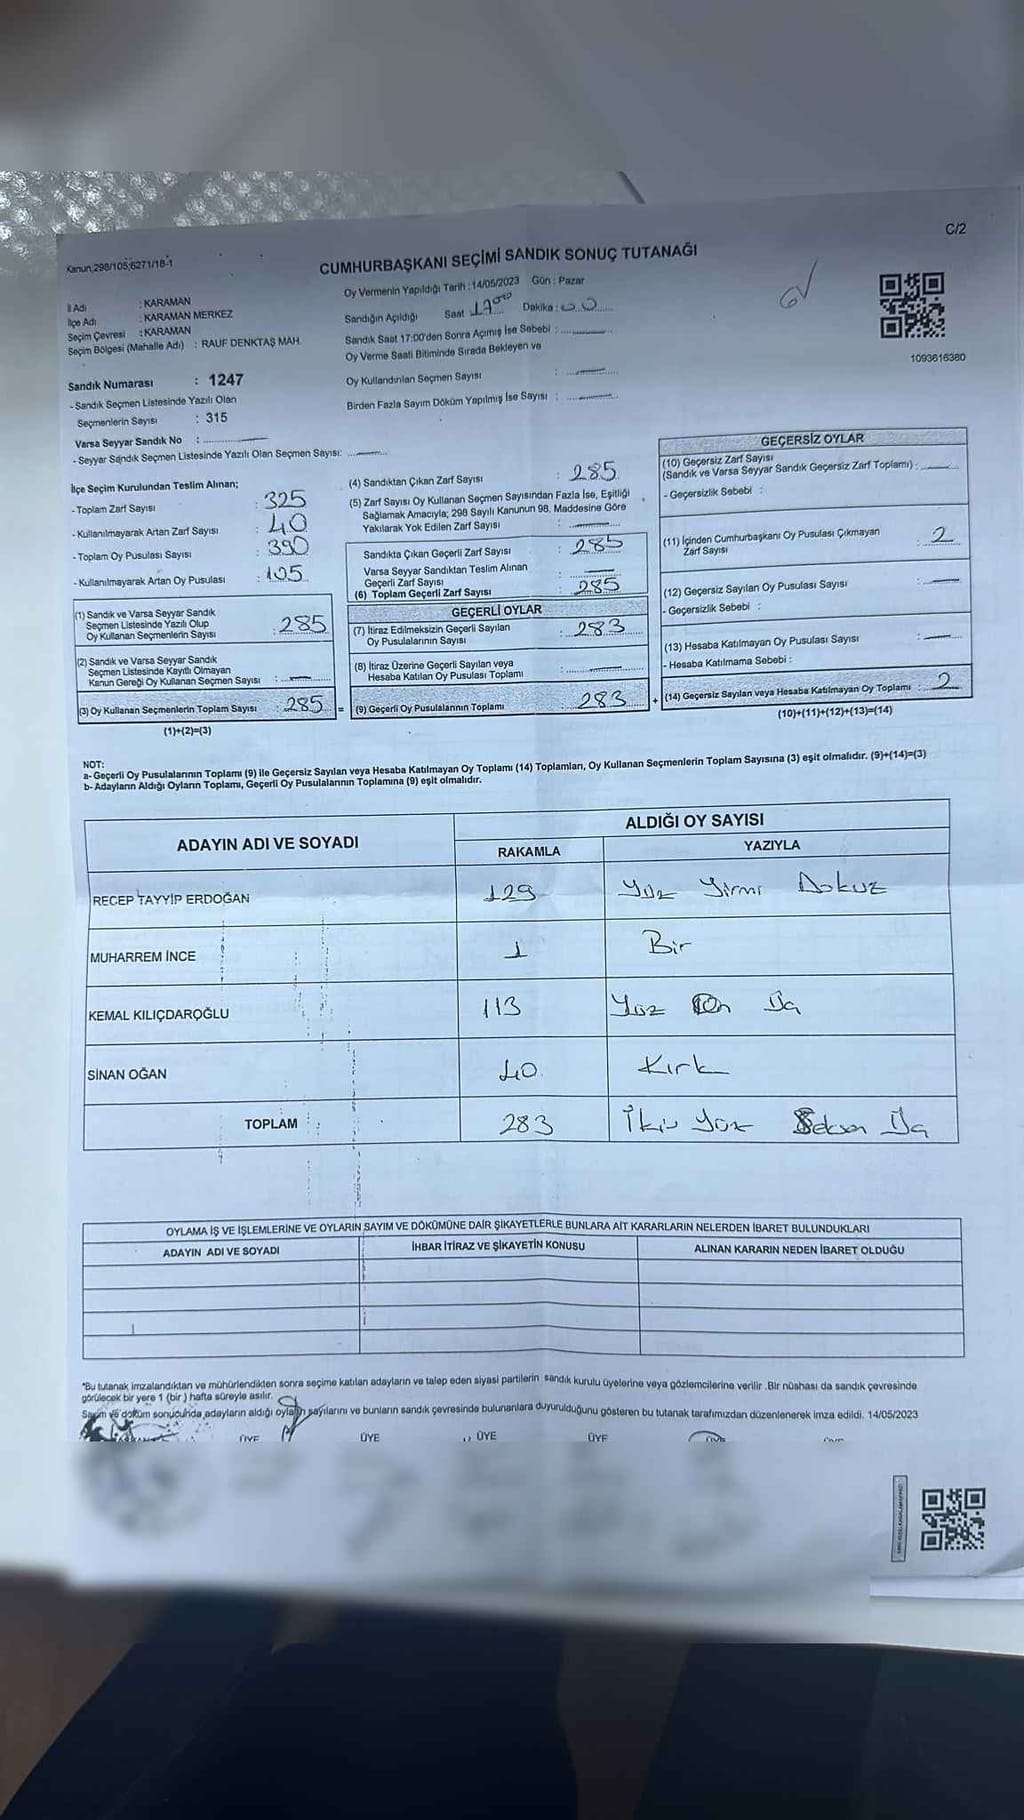 C/2
Kanun;298/105;6271/18-1
CUMHURBAŞKANI SEÇİMİ SANDIK SONUÇ TUTANAĞI
İl Adı : KARAMAN
İlçe Adı : KARAMAN MERKEZ
Seçim Çevresi : KARAMAN
Seçim Bölgesi (Mahalle Adı) : RAUF DENKTAŞ MAH.
Oy Vermenin Yapıldığı Tarih : 14/05/2023 Gün : Pazar
Sandığın Açıldığı Saat 17 00 Dakika : 00
Sandık Saat 17:00'den Sonra Açımış İse Sebebi :
Oy Verme Saati Bitiminde Sırada Bekleyen ve
Oy Kullandırılan Seçmen Sayısı :
Birden Fazla Sayım Döküm Yapılmış İse Sayısı :
1093616380
Sandık Numarası : 1247
- Sandık Seçmen Listesinde Yazılı Olan
Seçmenlerin Sayısı : 315
Varsa Seyyar Sandık No :
- Seyyar Sandık Seçmen Listesinde Yazılı Olan Seçmen Sayısı:
İlçe Seçim Kurulundan Teslim Alınan;
- Toplam Zarf Sayısı : 325
- Kullanılmayarak Artan Zarf Sayısı : 40
- Toplam Oy Pusulası Sayısı : 390
- Kullanılmayarak Artan Oy Pusulası : 105
(1) Sandık ve Varsa Seyyar Sandık
Seçmen Listesinde Yazılı Olup
Oy Kullanan Seçmenlerin Sayısı : 285
(2) Sandık ve Varsa Seyyar Sandık
Seçmen Listesinde Kayıtlı Olmayan
Kanun Gereği Oy Kullanan Seçmen Sayısı :
(3) Oy Kullanan Seçmenlerin Toplam Sayısı : 285 =
(1)+(2)=(3)
(4) Sandıktan Çıkan Zarf Sayısı : 285
(5) Zarf Sayısı Oy Kullanan Seçmen Sayısından Fazla İse, Eşitliği
Sağlamak Amacıyla; 298 Sayılı Kanunun 98. Maddesine Göre
Yakılarak Yok Edilen Zarf Sayısı :
Sandıkta Çıkan Geçerli Zarf Sayısı : 285
Varsa Seyyar Sandıktan Teslim Alınan
Geçerli Zarf Sayısı :
(6) Toplam Geçerli Zarf Sayısı : 285
GEÇERLİ OYLAR
(7) İtiraz Edilmeksizin Geçerli Sayılan
Oy Pusulalarının Sayısı : 283
(8) İtiraz Üzerine Geçerli Sayılan veya
Hesaba Katılan Oy Pusulası Toplamı :
(9) Geçerli Oy Pusulalarının Toplamı 283 +
GEÇERSİZ OYLAR
(10) Geçersiz Zarf Sayısı
(Sandık ve Varsa Seyyar Sandık Geçersiz Zarf Toplamı) :
- Geçersizlik Sebebi :
(11) İçinden Cumhurbaşkanı Oy Pusulası Çıkmayan
Zarf Sayısı : 2
(12) Geçersiz Sayılan Oy Pusulası Sayısı :
- Geçersizlik Sebebi :
(13) Hesaba Katılmayan Oy Pusulası Sayısı :
- Hesaba Katılmama Sebebi :
(14) Geçersiz Sayılan veya Hesaba Katılmayan Oy Toplamı : 2
(10)+(11)+(12)+(13)=(14)
NOT:
a- Geçerli Oy Pusulalarının Toplamı (9) ile Geçersiz Sayılan veya Hesaba Katılmayan Oy Toplamı (14) Toplamları, Oy Kullanan Seçmenlerin Toplam Sayısına (3) eşit olmalıdır. (9)+(14)=(3)
b- Adayların Aldığı Oyların Toplamı, Geçerli Oy Pusulalarının Toplamına (9) eşit olmalıdır.
ADAYIN ADI VE SOYADI ALDIĞI OY SAYISI
RAKAMLA YAZIYLA
RECEP TAYYİP ERDOĞAN 129 Yüz Yirmi Dokuz
MUHARREM İNCE 1 Bir
KEMAL KILIÇDAROĞLU 113 Yüz On Üç
SİNAN OĞAN 40 Kırk
TOPLAM 283 İki Yüz Seksen Üç
OYLAMA İŞ VE İŞLEMLERİNE VE OYLARIN SAYIM VE DÖKÜMÜNE DAİR ŞİKAYETLERLE BUNLARA AİT KARARLARIN NELERDEN İBARET BULUNDUKLARI
ADAYIN ADI VE SOYADI İHBAR İTİRAZ VE ŞİKAYETİN KONUSU ALINAN KARARIN NEDEN İBARET OLDUĞU
"Bu tutanak imzalandıktan ve mühürlendikten sonra seçime katılan adayların ve talep eden siyasi partilerin sandık kurulu üyelerine veya gözlemcilerine verilir .Bir nüshası da sandık çevresinde
görülecek bir yere 1 (bir ) hafta süreyle asılır.
Sayım ve döküm sonucunda adayların aldığı oyların sayılarını ve bunların sandık çevresinde bulunanlara duyurulduğunu gösteren bu tutanak tarafımızdan düzenlenerek imza edildi. 14/05/2023
ÜYE ÜYE ÜYE ÜYE